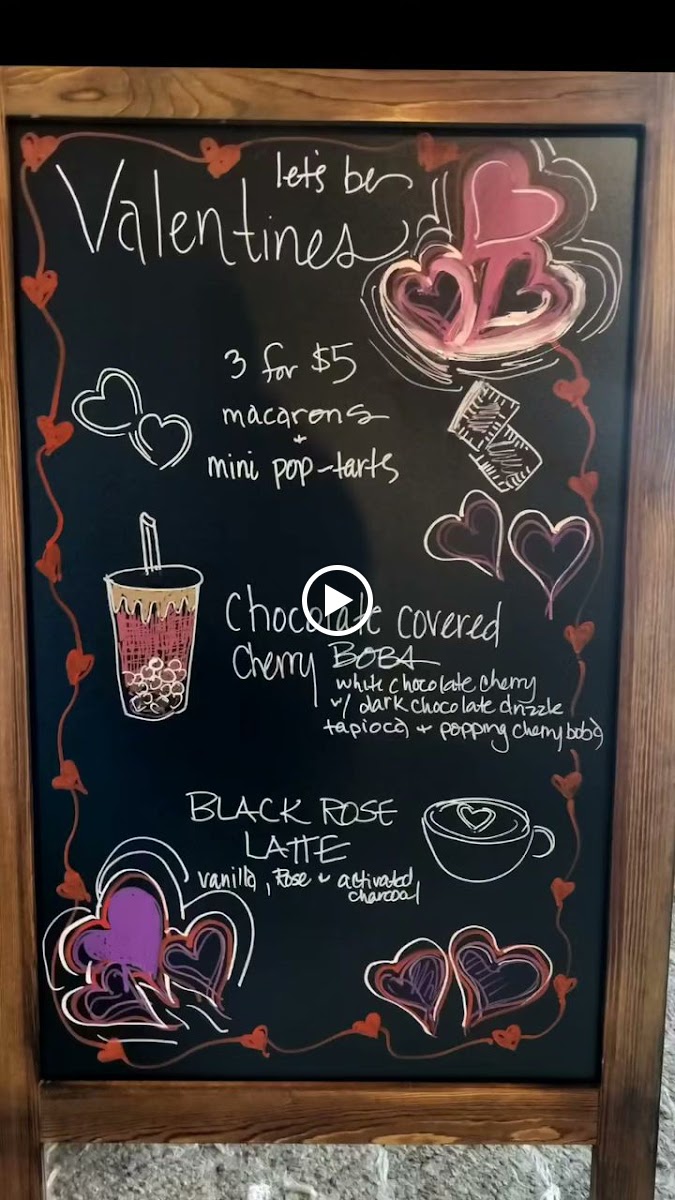 let's be
Valentines
3 for $5
macarons
+
mini pop-tarts
Chocolate covered
Cherry BOBA
white chocolate cherry
w/ dark chocolate drizzle
tapioca + popping cherry boba
BLACK ROSE
LATTE
vanilla, Rose + activated
charcoal